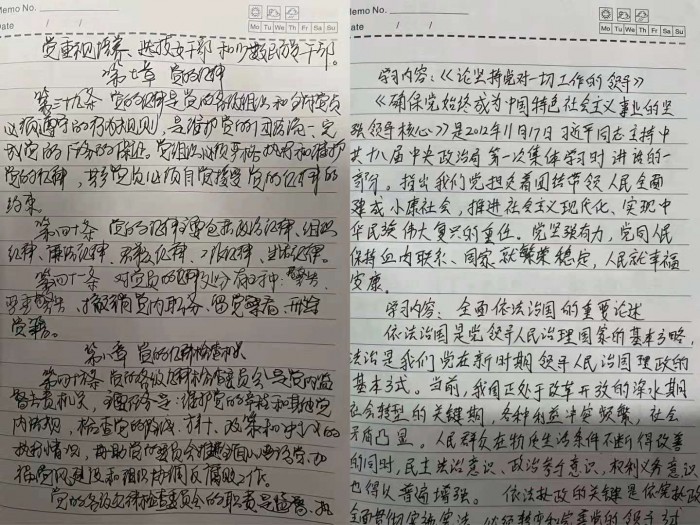 Memo No.
Date / /
Mo Tu We Th Fr Sa Su
党重视培养、选拔女干部和少数民族干部。
第七章 党的纪律
第三十九条 党的纪律是党的各级组织和全体党员
必须遵守的行为规则，是维护党的团结统一、完
成党的任务的保证。党组织必须严格执行和维护
党的纪律，共产党员必须自觉接受党的纪律的
约束。
第四十条 党的纪律主要包括政治纪律、组织
纪律、廉洁纪律、群众纪律、工作纪律、生活纪律。
第四十一条 对党员的纪律处分有五种：警告、
严重警告、撤销党内职务、留党察看、开除
党籍。
第八章 党的纪律检查机关
党的各级纪律检查委员会是党内监
督专责机关，主要任务是：维护党的章程和其他党
内法规，检查党的路线、方针、政策和决议的
执行情况，协助党的委员会推进全面从严治党、加
强党风建设和组织协调反腐败工作。
党的各级纪律检查委员会的职责是监督、执
Memo No.
Date / /
Mo Tu We Th Fr Sa Su
学习内容：《论坚持党对一切工作的领导》
《确保党始终成为中国特色社会主义事业的坚
强领导核心》是2012年11月17日习近平同志主持中
共十八届中央政治局第一次集体学习时讲话的一
部分。指出我们党担负着团结带领人民全面
建成小康社会、推进社会主义现代化、实现中
华民族伟大复兴的重任。党坚强有力，党同人民
保持血肉联系、国家就繁荣稳定，人民就幸福
安康。
学习内容：全面依法治国的重要论述
依法治国是党领导人民治理国家的基本方略，
法治是我们党在新时期领导人民治国理政的
基本方式。当前，我国正处于改革开放的深水期
社会转型的关键期，各种利益冲突频繁，社会
矛盾凸显。人民群众在物质生活条件不断得改善
的同时，民主法治意识、政治参与意识、权利义务意识
也得以普遍增强。依法执政的关键是依宪执政
全面贯彻实施宪法